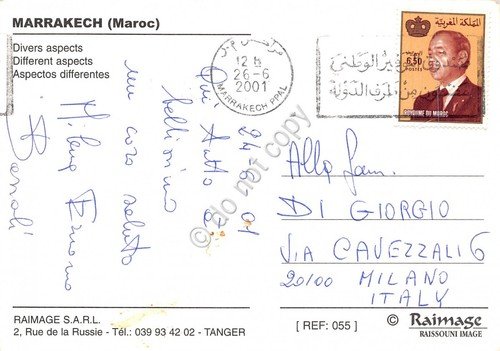 MARRAKECH (Maroc)
Divers aspects
Different aspects
Aspectos differentes
12 H
26-6
2001
MARRAKECH PPAL
المملكة المغربية
6,50
POSTES
ROYAUME DU MAROC
24-6-01
Qui tutto è
bellissimo
un caro saluto
Alla fam.
DI GIORGIO
VIA CAVEZZALI 6
20100 MILANO
ITALY
do not copy
RAIMAGE S.A.R.L.
2, Rue de la Russie - Tél.: 039 93 42 02 - TANGER
[ REF: 055 ]
© Raimage
RAISSOUNI IMAGE